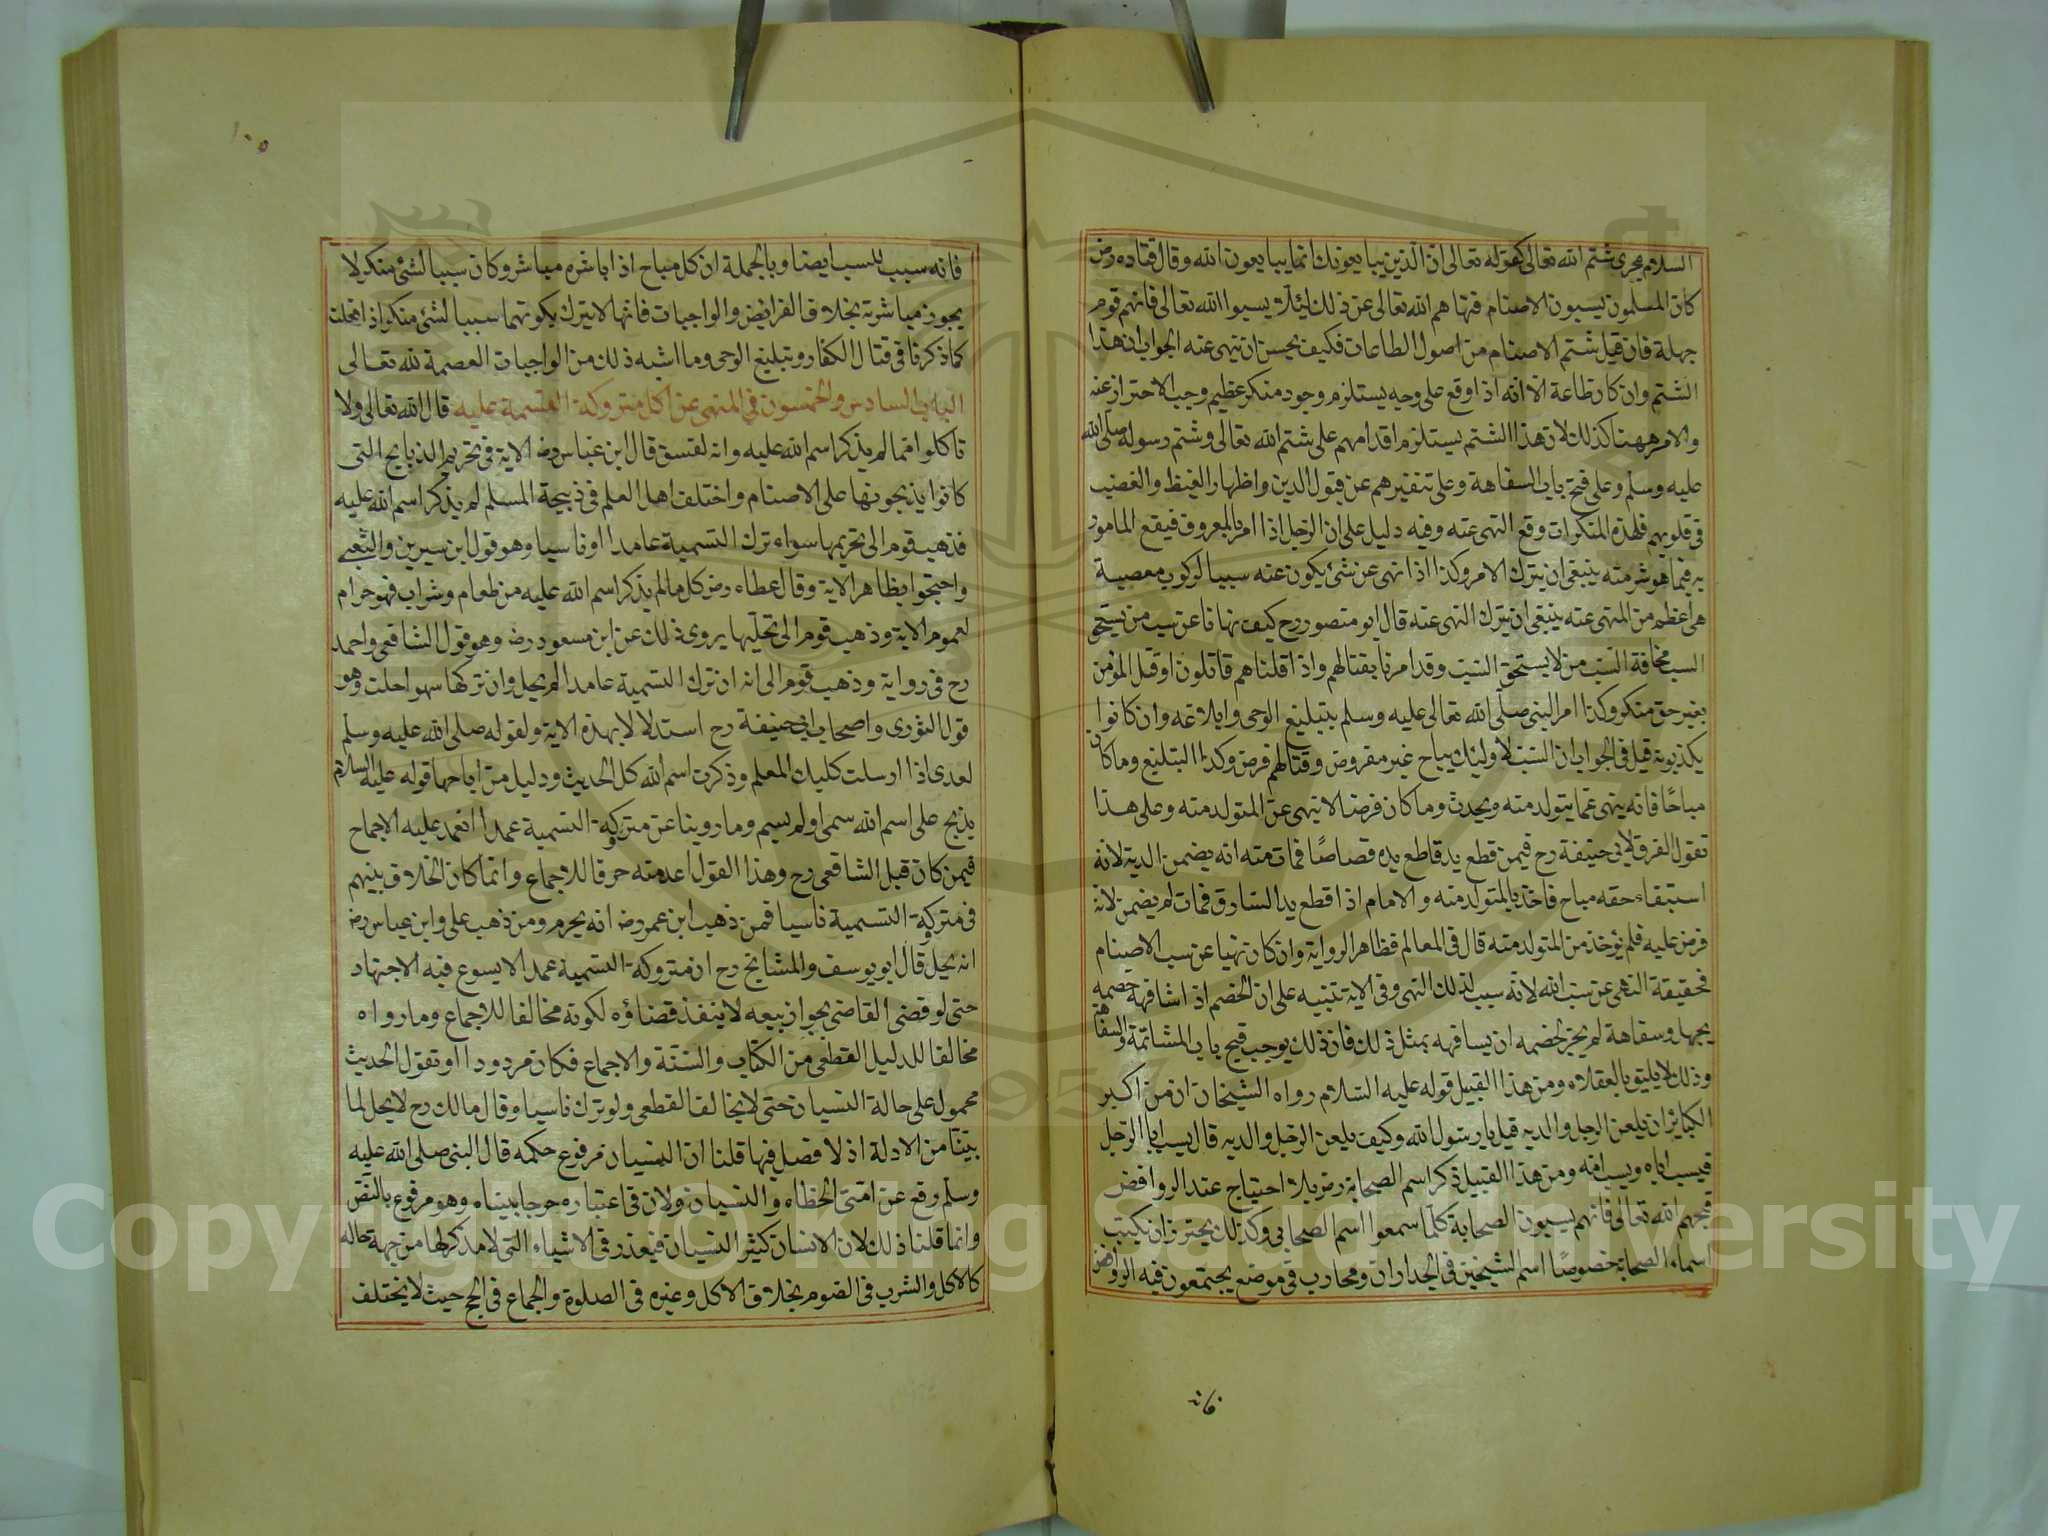 السلام يجرى شتم الله تعالى كقوله تعالى ان الذين يبايعونك انما يبايعون الله وقال قتاده رض
كان المسلمون يسبون الاصنام فنهاهم الله تعالى عن ذلك لئلا يسبوا الله تعالى فانهم قوم
جهلة فان قيل شتم الاصنام من اصول الطاعات فكيف يحسن ان ينهى عنه الجواب ان هذا
الشتم وان كان طاعة الا انه اذا وقع على وجه يستلزم وجود منكر عظيم وجب الاحتراز عنه
والامر ههنا كذلك لان هذا الشتم يستلزم اقدامهم على شتم الله تعالى وشتم رسوله صلى الله
عليه وسلم وعلى فتح باب السفاهة وعلى تنفيرهم عن قبول الدين واظهار الغيظ والغضب
فى قلوبهم فلهذه المنكرات وقع النهى عنه وفيه دليل على ان الرجل اذا امر بالمعروف فيقع المامور
به فيما هو شر منه ينبغى ان يترك الامر وكذا اذا نهى عن شئ يكون عنه سببا لركوب معصية
هى اعظم من المنهى عنه ينبغى ان يترك النهى عنه قال ابو منصور رح كيف نهانا عن سب من يستحق
السب مخافة السب من لا يستحق السب وقد امرنا بقتالهم واذا قلناهم قاتلون او قتل المؤمن
بغير حق منكر وكذا امر النبى صلى الله تعالى عليه وسلم بتبليغ الوحى وابلاغه وان كانوا
يكذبونه قيل فى الجواب ان السب لاولئك مباح غير مفروض وقتالهم فرض وكذا التبليغ وما كان
مباحًا فانه ينهى عما يتولد منه ويحدث وما كان فرضا لا ينهى عن المتولد منه وعلى هذا
نقول الفرق لابى حنيفة رح فيمن قطع يد قاطع يده قصاصًا فمات منه انه يضمن الدية لانه
استيفاء حقه مباح فاخذ بالمتولد منه والامام اذا قطع يد السارق فمات لم يضمن لانه
فرض عليه فلم يؤخذ من المتولد منه قال فى المعالم فظاهر الرواية وان كان نهيا عن سب الاصنام
فحقيقة النهى عن سب الله لانه سبب لذلك النهى وفى الاية تنبيه على ان الخصم اذا شافهه خصمه
بجهل وسفاهة لم يجز لخصمه ان يسافهه بمثل ذلك فان ذلك يوجب فتح باب المشاتمة والسفاهة
وذلك لا يليق بالعقلاء ومن هذا القبيل قوله عليه السلام رواه الشيخان ان من اكبر
الكبائر ان يلعن الرجل والديه قيل يا رسول الله وكيف يلعن الرجل والديه قال يسب ابا الرجل
فيسب اباه ويسب امه ومن هذا القبيل ذكر اسم الصحابة رض بلا احتياج عند الروافض
قبحهم الله تعالى فانهم يسبون الصحابة كلما سمعوا اسم الصحابى وكذلك يحترز ان يكتب
اسماء الصحابة خصوصًا اسم الشيخين فى الجدارات ومحارب فى موضع يجتمعون فيه الروافض
فانه
١٠٥
فانه سبب للسب ايضا وبالجملة ان كل مباح اذا باشره مباشر وكان سببا لشئ منكر لا
يجوز مباشرته بخلاف الفرائض والواجبات فانها لا يترك بكونهما سببا لشئ منكر اذا فعلت
كما ذكرنا فى قتال الكفار وتبليغ الوحى وما اشبه ذلك من الواجبات العصمة لله تعالى
الباب السادس والخمسون في المنهى عن اكل متروكة القسمة عليه قال الله تعالى ولا
تاكلوا مما لم يذكر اسم الله عليه وانه لفسق قال ابن عباس رض الاية فى تحريم الذبايح التى
كانوا يذبحونها على الاصنام واختلف اهل العلم فى ذبيحة المسلم لم يذكر اسم الله عليه
فذهب قوم الى تحريمها سواء ترك التسمية عامدا او ناسيا وهو قول ابن سيرين والشعبى
واحتجوا بظاهر الاية وقال عطاء رض كل ما لم يذكر اسم الله عليه من طعام وشراب فهو حرام
لعموم الاية وذهب قوم الى تحليها يروى ذلك عن ابن مسعود رض وهو قول الشافعى واحمد
رح فى رواية وذهب قوم الى انه ان ترك التسمية عامدا لم يحل وان تركها سهوا حلت وهو
قول الثورى واصحاب ابى حنيفة رح استدلالا بهذه الاية ولقوله صلى الله عليه وسلم
لعدى اذا ارسلت كلبك المعلم وذكرت اسم الله كل الحديث ودليل من اباحها قوله عليه السلام
يذبح على اسم الله سمى او لم يسم وما روينا عن متروكة التسمية عمدا انعقد عليه الاجماع
فيمن كان قبل الشافعى رح وهذا القول اعد منه خرقا للاجماع وانما كان الخلاف بينهم
فى متروكة التسمية ناسيا فمن ذهب ابن عمر رض انه يحرم ومن ذهب على وابن عباس رض
انه يحل قال ابو يوسف والمشايخ رح ان متروكة التسمية عمدا لا يسوع فيه الاجتهاد
حتى لو قضى القاضى بجواز بيعه لا ينفذ قضاؤه لكونه مخالفا للاجماع وما رواه
مخالفا للدليل القطعى من الكتاب والسنة والاجماع فكان مردودا او نقول الحديث
محمول على حالة النسيان حتى لا يخالف القطعى ولو ترك ناسيا وقال مالك رح لا يحل لما
بينا من الادلة اذ لا فصل فيها قلنا ان النسيان مرفوع حكمه قال النبى صلى الله عليه
وسلم رفع عن امتى الخطاء والنسيان ولان فى اعتباره حرجا بيناه وهو مرفوع بالنص
وانما قلنا ذلك لان الانسان كثير النسيان فيعذر فى الاشياء التى لا مذكر لها من جهة حاله
كالاكل والشرب فى الصوم بخلاف الاكل وغيره فى الصلوة والجماع فى الحج حيث لا يختلف
Copyright © King Saud University
1957